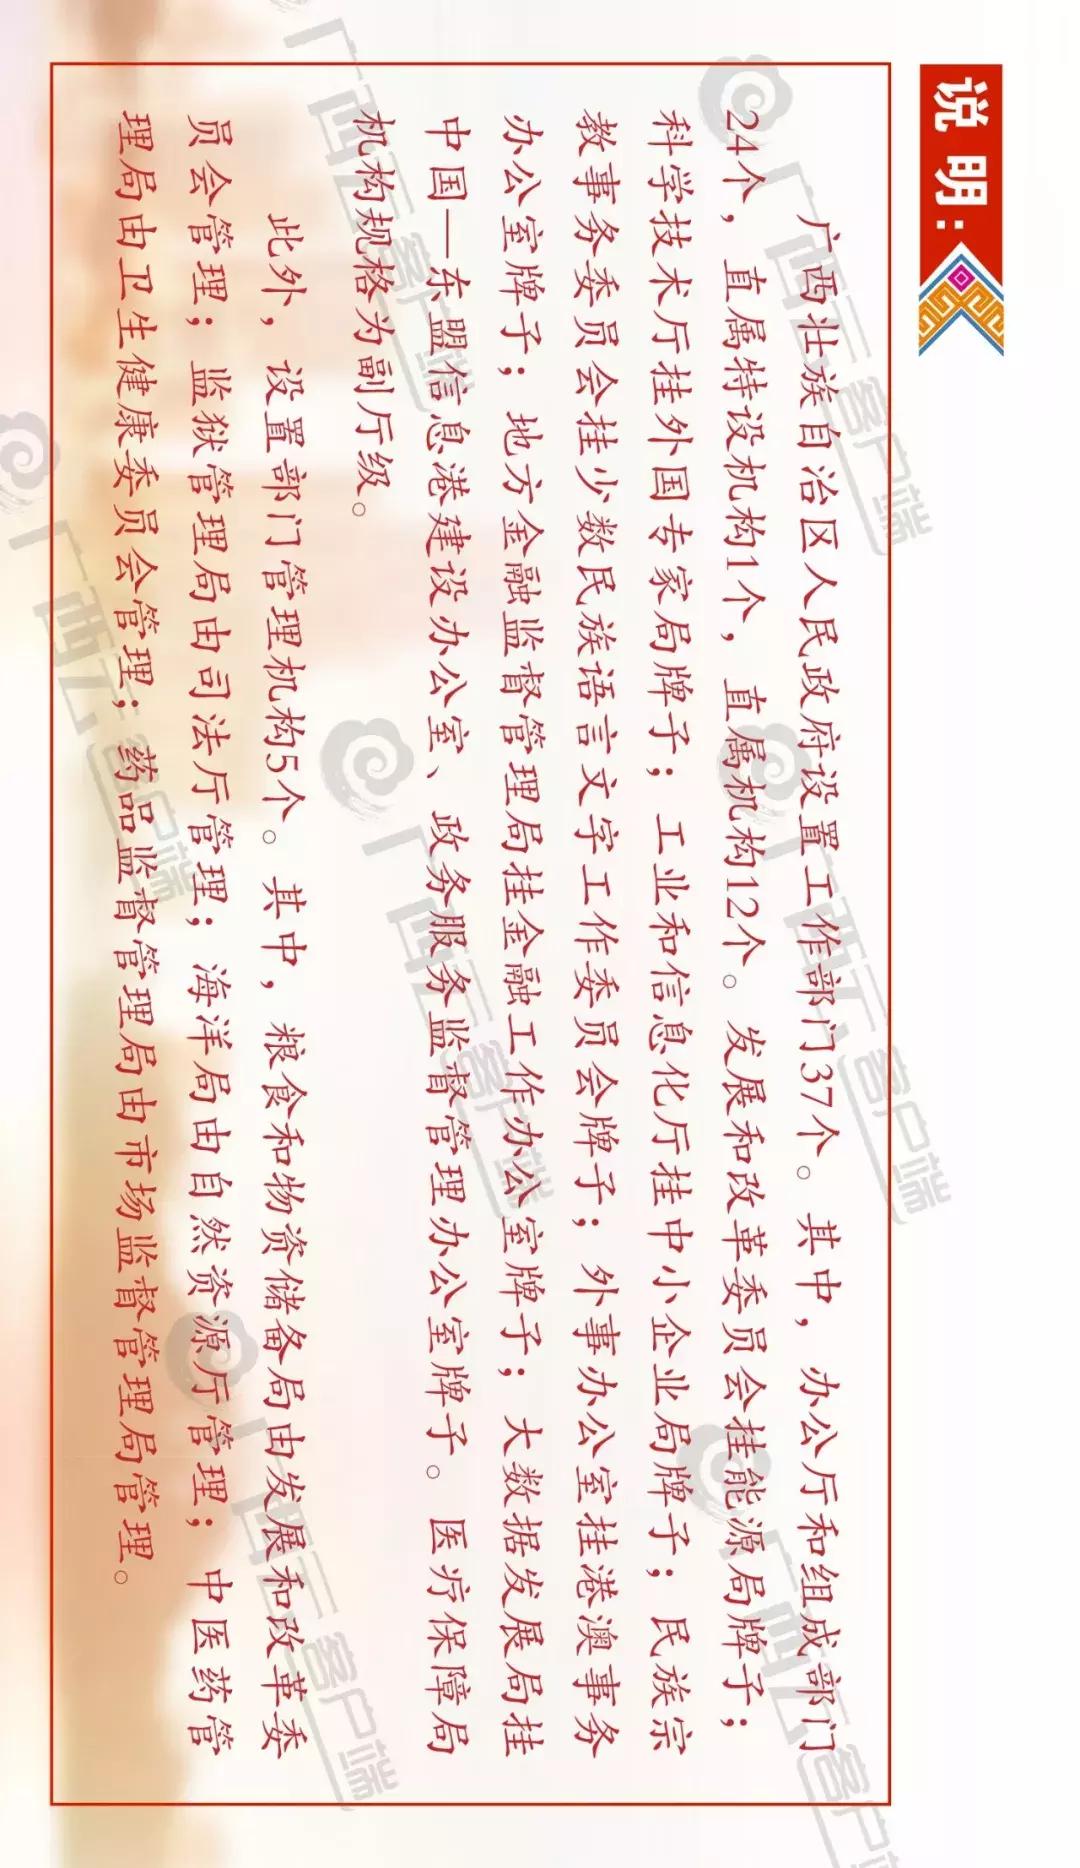 说明：
广西壮族自治区人民政府设置工作部门37个。其中，办公厅和组成部门
24个，直属特设机构1个，直属机构12个。发展和改革委员会挂能源局牌子；
科学技术厅挂外国专家局牌子；工业和信息化厅挂中小企业局牌子；民族宗
教事务委员会挂少数民族语言文字工作委员会牌子；外事办公室挂港澳事务
办公室牌子；地方金融监督管理局挂金融工作办公室牌子；大数据发展局挂
中国—东盟信息港建设办公室、政务服务监督管理办公室牌子。医疗保障局
机构规格为副厅级。
此外，设置部门管理机构5个。其中，粮食和物资储备局由发展和改革委
员会管理；监狱管理局由司法厅管理；海洋局由自然资源厅管理；中医药管
理局由卫生健康委员会管理；药品监督管理局由市场监督管理局管理。
广西云客户端
广西云客户端
广西云客户端
广西云客户端
广西云客户端
广西云客户端
广西云客户端